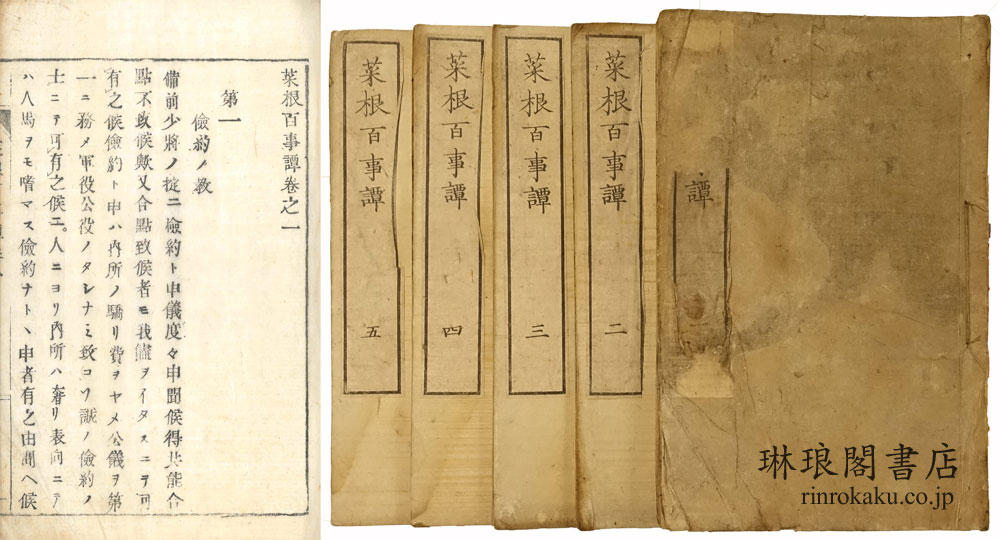 菜根百事譚卷之一
第一
儉約ノ教
備前少將ノ掟ニ儉約ト申儀度々申聞候得共能合
點不致候歟又合點致候者モ我儘ヲイタスニテ可
有之候儉約ト申ハ内所ノ驕リ費ヲヤメ公儀ヲ第
一ニ務メ軍役公役ノタシナミ致コソ誠ノ儉約ノ
士ニテ可有之候エ。人ニヨリ内所ハ奢リ表向ニテ
ハ人馬ヲモ嗜マス儉約ナト丶申者有之由聞ヘ候
譚
菜根百事譚 二
菜根百事譚 三
菜根百事譚 四
菜根百事譚 五
琳琅閣書店
rinrokaku.co.jp